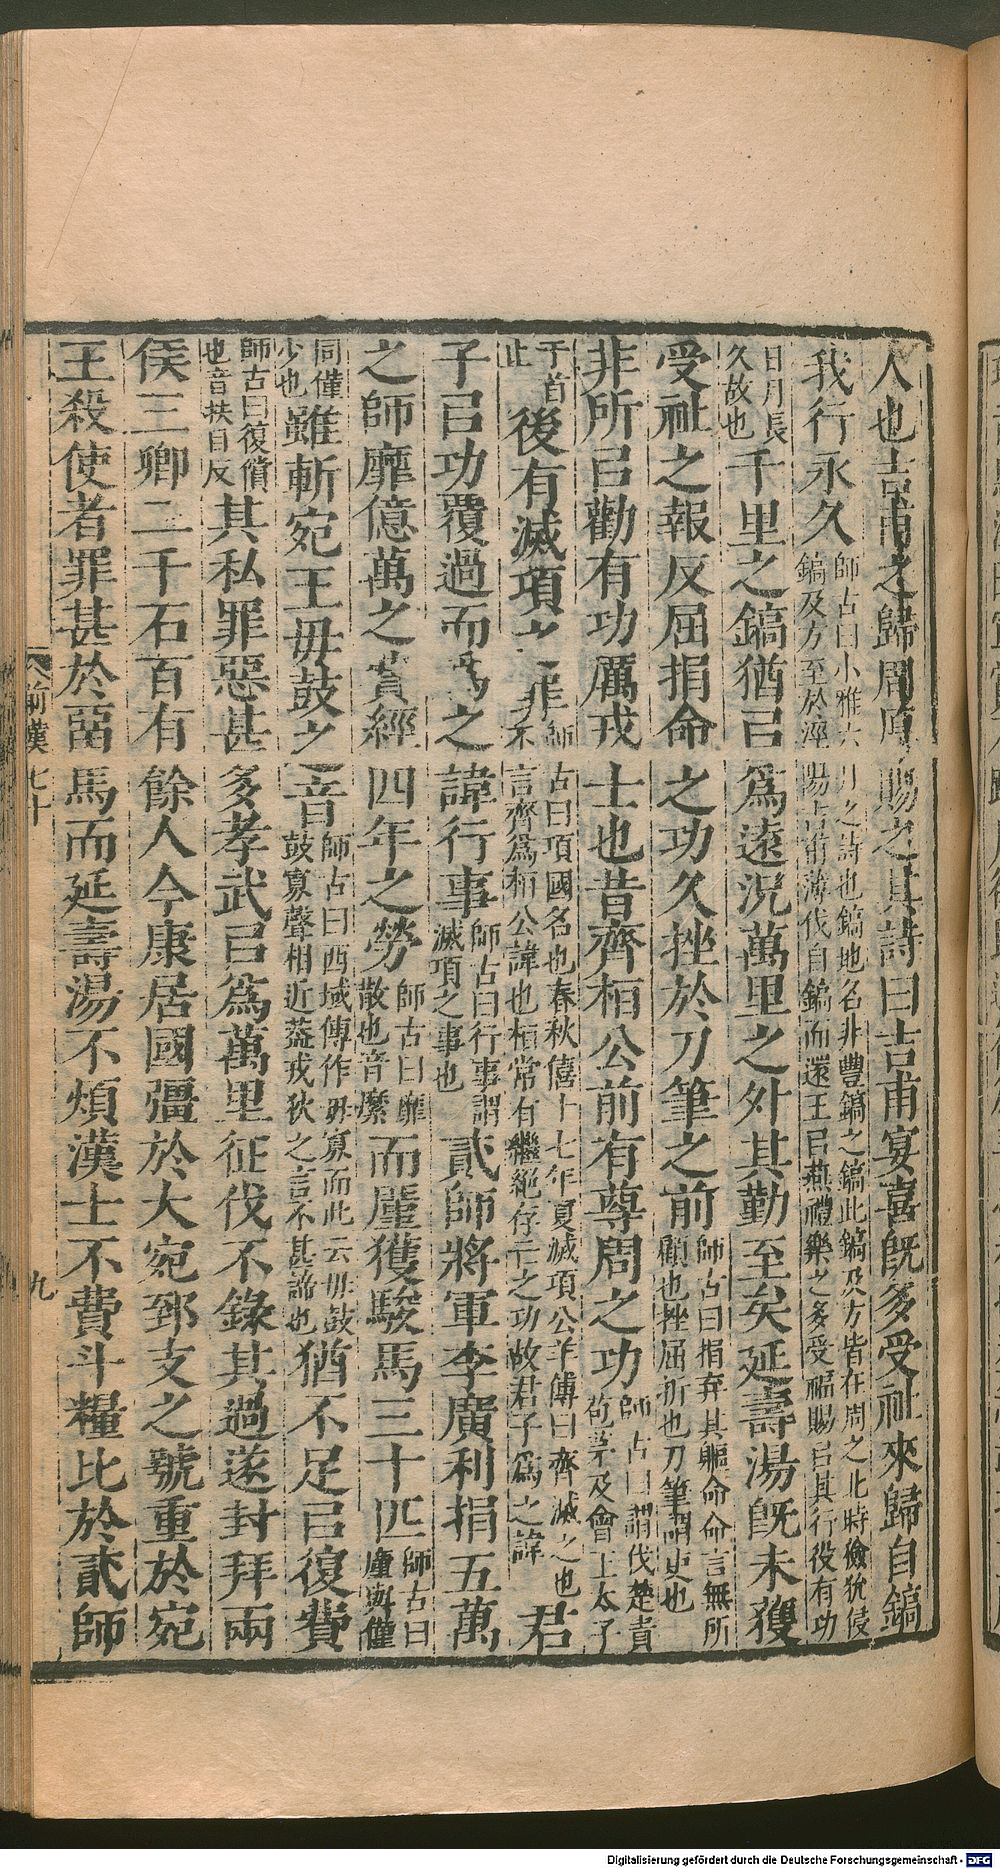 人也吉甫之歸周厚賜之其詩曰吉甫宴喜旣多受祉來歸自鎬
我行永久師古曰小雅六月之詩也鎬地名非豐鎬之鎬此鎬及方皆在周之北時獫狁侵鎬及方至於涇陽吉甫薄伐自鎬而還王㠯燕禮樂之多受福賜㠯其行役有功
日月長久故也千里之鎬猶㠯爲遠況萬里之外其勤至矣延壽湯旣未獲
受祉之報反屈捐命之功久挫於刀筆之前師古曰捐弃其軀命命言無所顧也挫屈折也刀筆謂吏也
非所㠯勸有功厲戎士也昔齊桓公前有尊周之功師古曰謂伐楚責苞茅及會王太子
于首止後有滅項之罪師古曰項國名也春秋僖十七年夏滅項公羊傳曰齊滅之也不言齊爲桓公諱也桓常有繼絕存亡之功故君子爲之諱君
子㠯功覆過而爲之諱行事師古曰行事謂滅項之事也貳師將軍李廣利捐五萬
之師靡億萬之費經四年之勞師古曰靡散也音縻而廑獲駿馬三十匹師古曰廑與僅
同僅少也雖斬宛王毋鼓之音師古曰西域傳作毋寡而此云毋鼓鼓寡聲相近葢戎狄之言不甚諦也猶不足㠯復費
師古曰復償也音扶目反其私罪惡甚多孝武㠯爲萬里征伐不錄其過遂封拜兩
侯三卿二千石百有餘人今康居國彊於大宛郅支之號重於宛
王殺使者罪甚於畱馬而延壽湯不煩漢士不費斗糧比於貳師
前漢七十
九
Digitalisierung gefördert durch die Deutsche Forschungsgemeinschaft - DFG